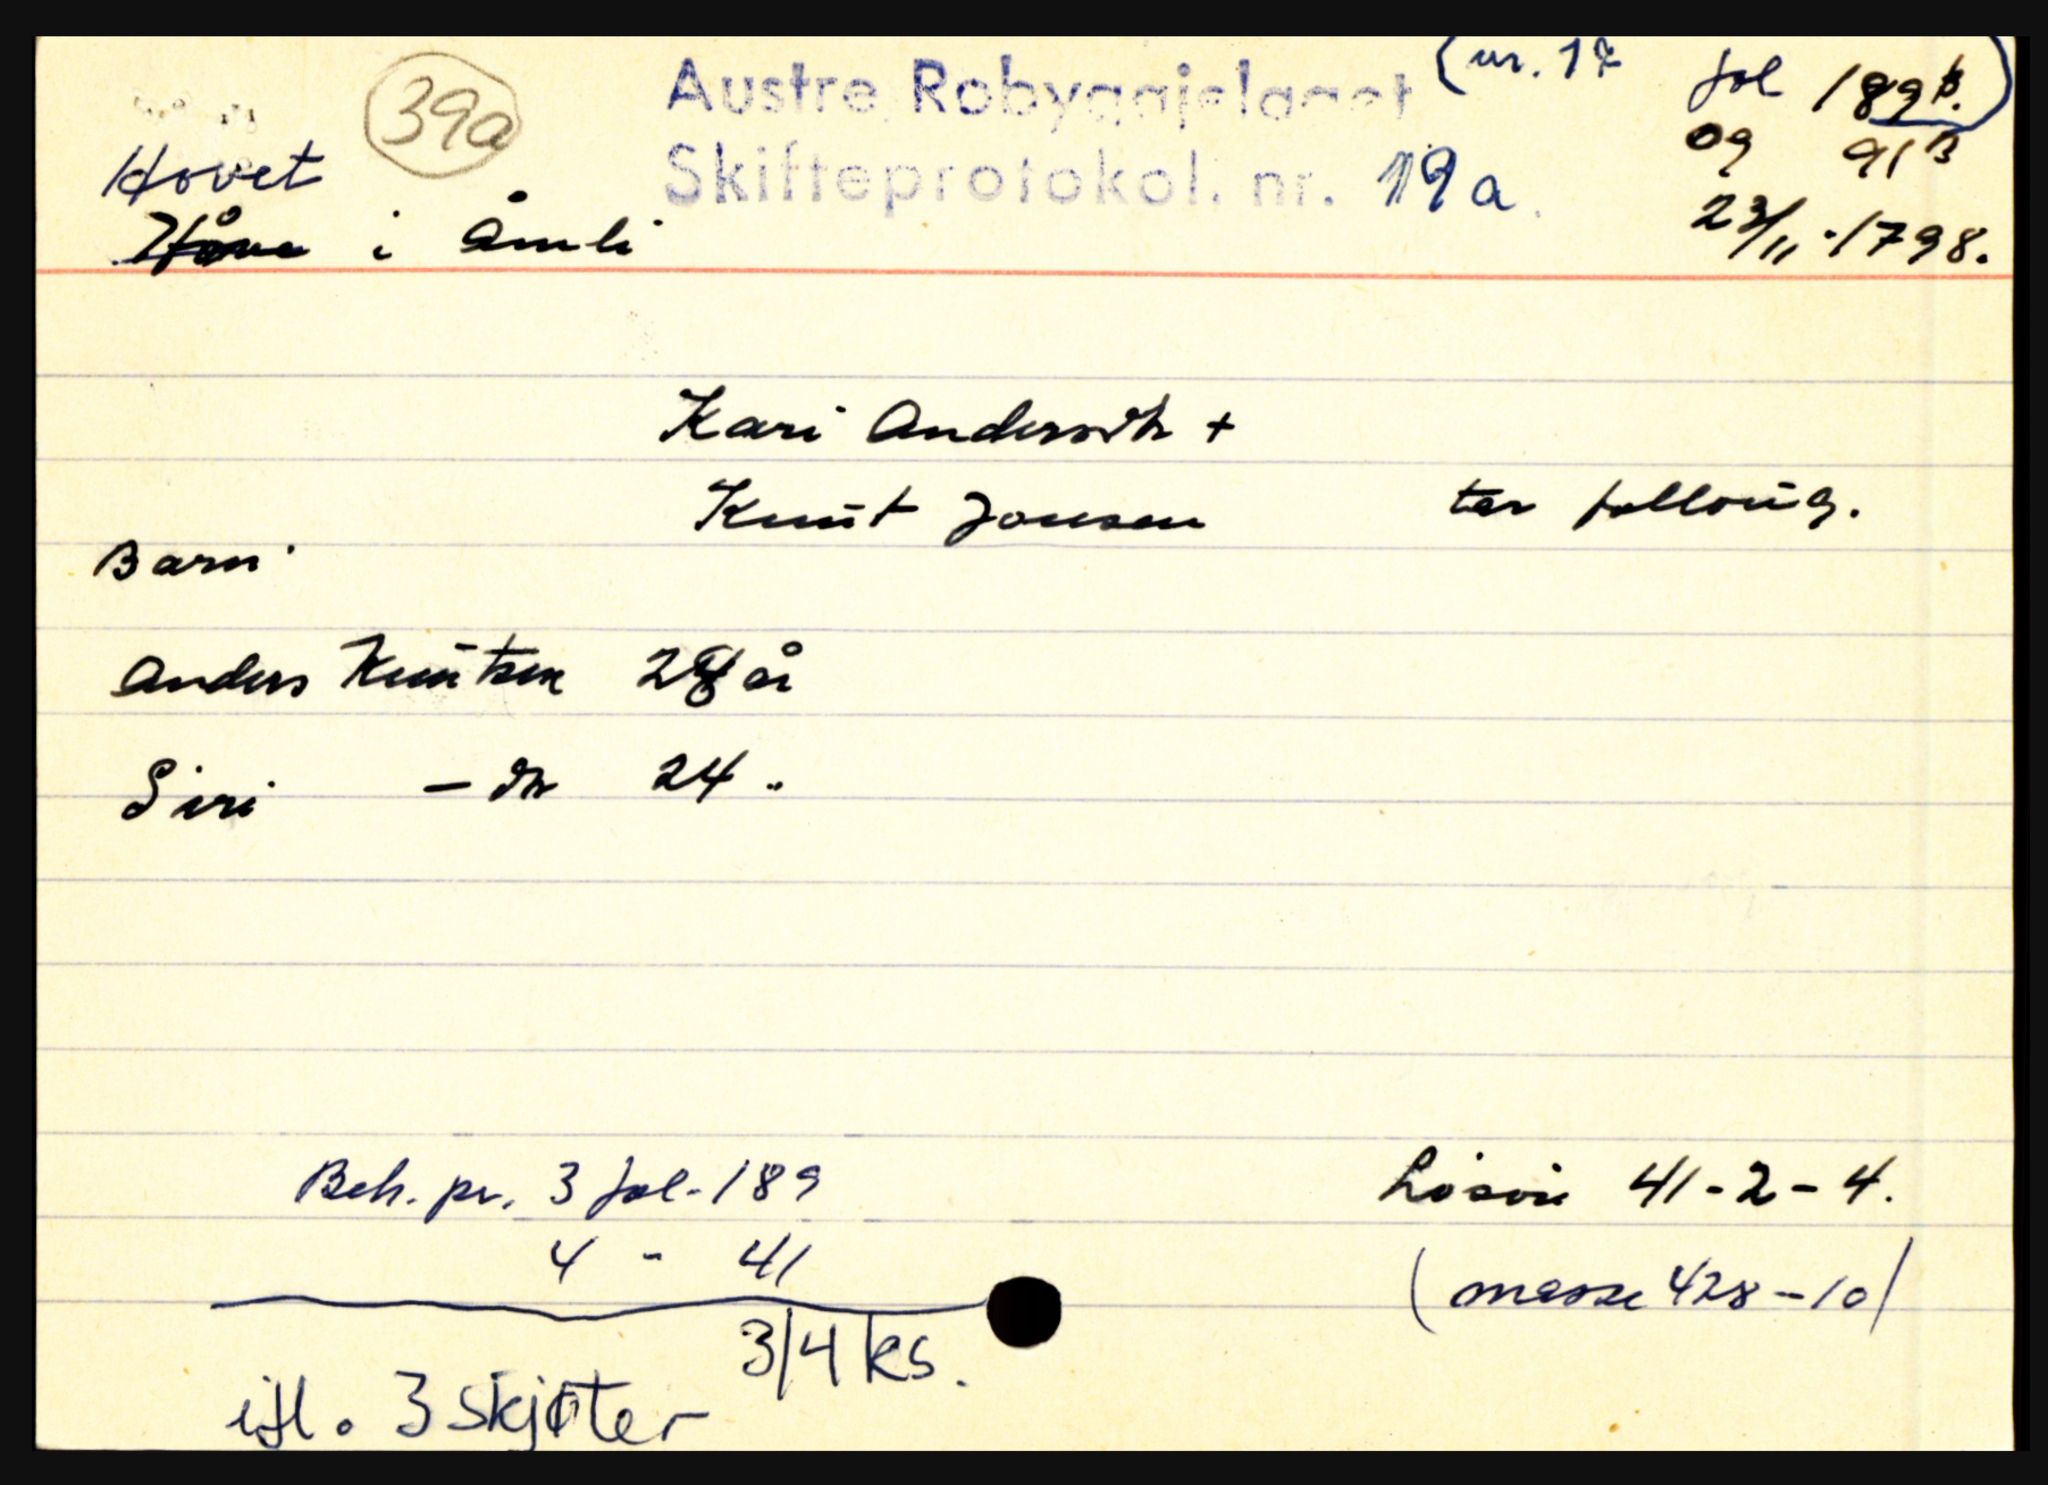 Austre Robyggjelaget (nr. 17 fol 189 B.)
39a
og 91 B
Hovet
Skifteprotokol. nr. 19a.
Håve i Åmli
23/11 - 1798.
Kari Andersdtr +
Knut Jonsen tar følloug.
Barn
Anders Knutsen 28 år
Siri - dtr 24 "
Beh. pr. 3 fol. 189
4 - 41
Løsøre 41-2-4.
(masse 428-10)
3/4 ks.
ifl. 3 skjøter